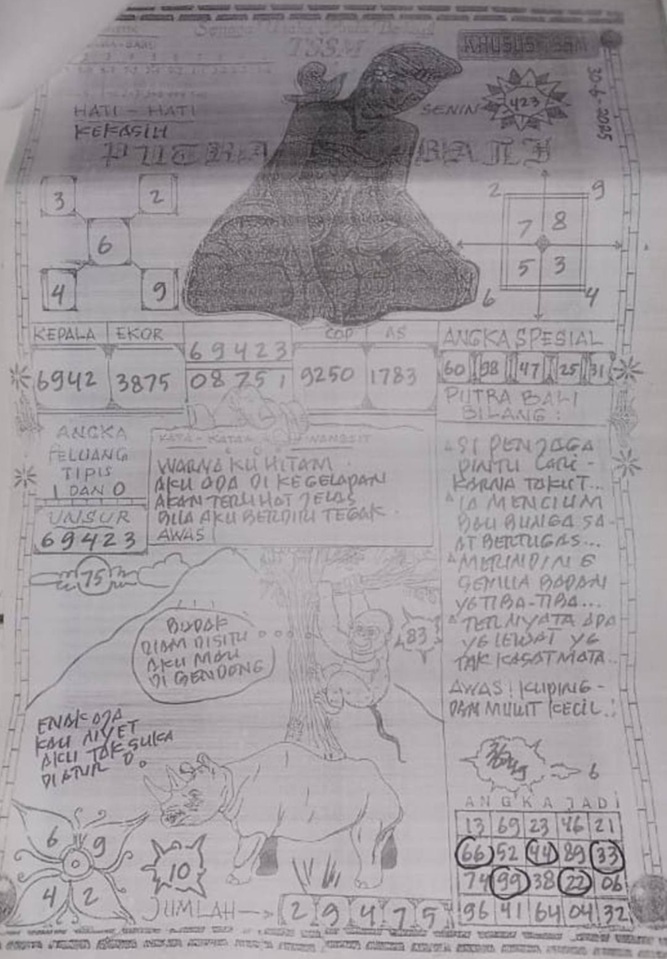 TSSM
KHUSUS TSSM
30-6-2025
HATI - HATI
KEKASIH
SENIN
423
PUTRA BALI
3 2
6
4 9
2 9
7 8
5 3
6 4
KEPALA EKOR COP AS
6942 3875
69423
08751
9250 1783
ANGKA SPESIAL
60 98 47 25 31
PUTRA BALI
BILANG :
ANGKA
PELUANG
TIPIS
1 DAN 0
UNSUR
69423
KATA - KATA WANGSIT
WARNA KU HITAM
AKU ADA DI KEGELAPAN
AKAN TERLIHAT JELAS
BILA AKU BERDIRI TEGAK
AWAS
SI PENJAGA
PINTU LARI -
KARNA TAKUT...
IA MENCIUM
BAU BUNGA SA-
AT BERTUGAS...
MERINDING
SEMUA BADAN
YG TIBA-TIBA...
TERNYATA ADA
YG LEWAT YG
TAK KASAT MATA..
AWAS! KUPING -
DAN MULUT KECIL..!
75
BUDAK
DIAM DISITU
AKU MAU
DI GENDONG
83
ENAK AJA
KAU NYET
AKU TAK SUKA
DIATUR
6 9
4 2
10
JUMLAH
2 9 4 7 5
6
ANGKA JADI
13 69 23 46 21
66 52 44 89 33
74 99 38 22 06
96 41 64 04 32